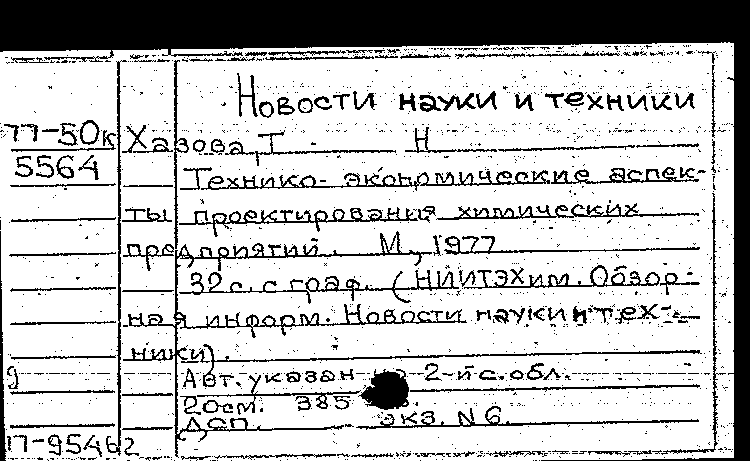 Новости науки и техники
77-50к Хазова, Т Н
5564
Технико- экономические аспек-
ты проектирования химических
предприятий. М., 1977
32 с. с граф. (НИИТЭХим. Обзор-
ная информ. Новости науки и тех-
ники).
Авт. указан на 2-й с. обл.
20см. 385 экз.
ДСП. экз. N 6.
77-95462